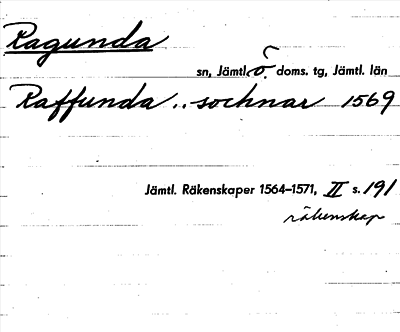 Ragunda
sn, Jämtl. ö. doms. tg, Jämtl. län
Raffunda .. sochnar 1569
Jämtl. Räkenskaper 1564–1571, II s. 191
räkenskap